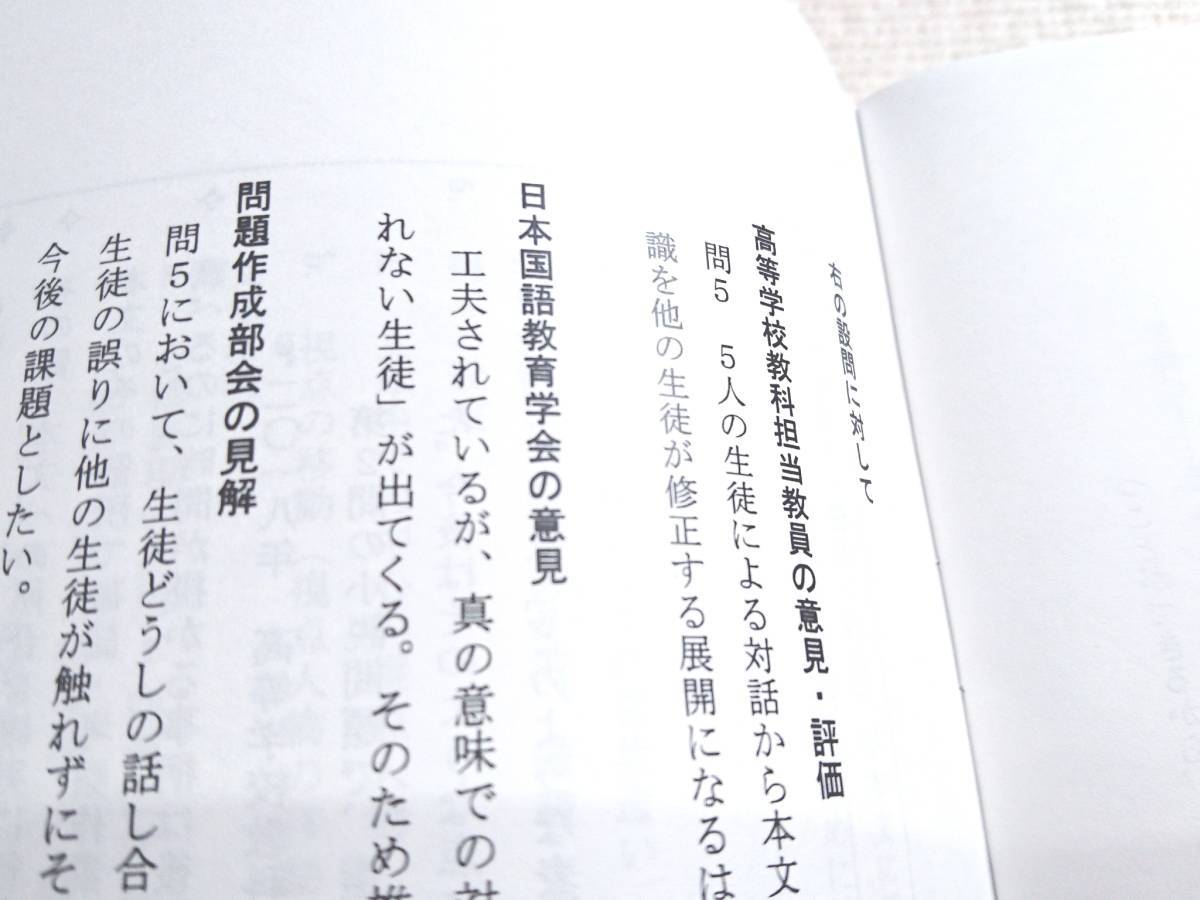 右の設問に対して
高等学校教科担当教員の意見・評価
問5　5人の生徒による対話から本文
識を他の生徒が修正する展開になるは
日本国語教育学会の意見
工夫されているが、真の意味での対
れない生徒」が出てくる。そのため
問題作成部会の見解
問5において、生徒どうしの話し合
生徒の誤りに他の生徒が触れずにそ
今後の課題としたい。